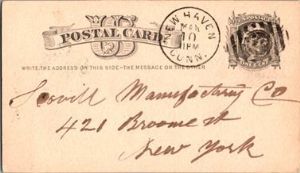 POSTAL CARD
NEW HAVEN
MAR
10
1PM
CONN.
WRITE THE ADDRESS ON THIS SIDE - THE MESSAGE ON THE OTHER
Scovill Manufacturing Co
421 Broome st
New York